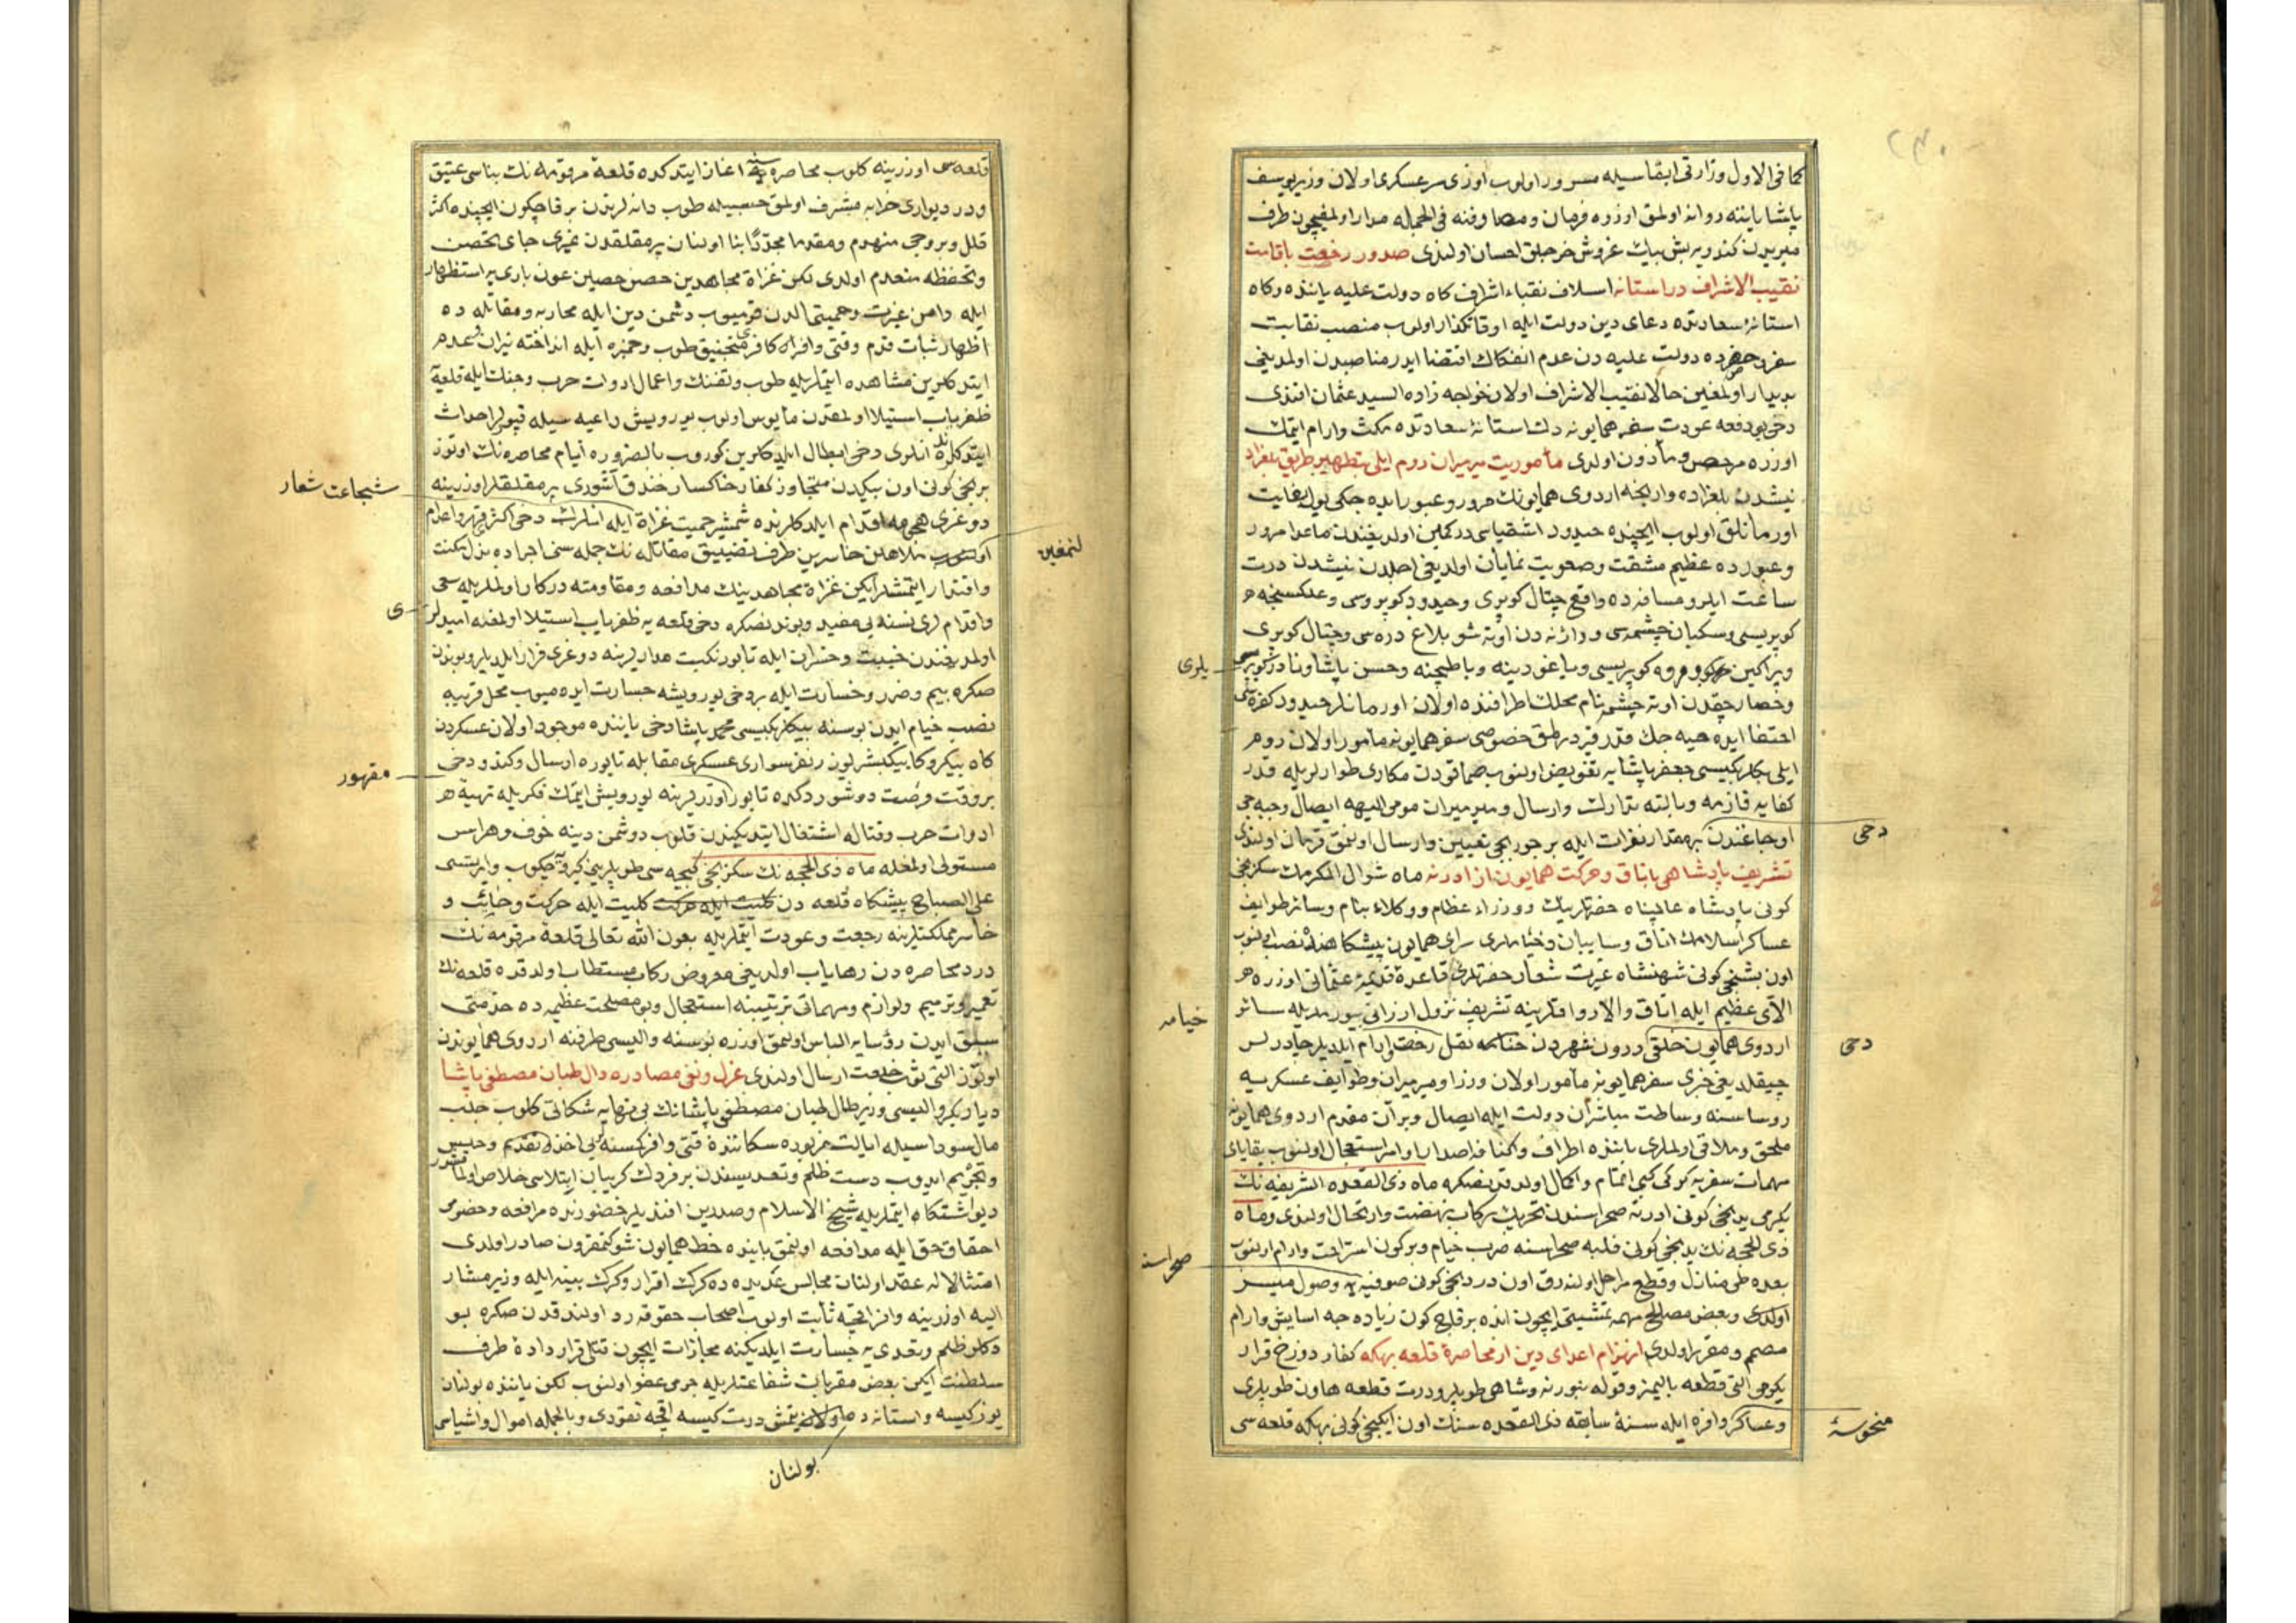 كما فى الاول وزارتى ابقاسيله مسرور اولوب اوزى سرعسكرى اولان وزير يوسف
پاشا ياننه روانه اولمق اوزره فرمان ومصارفنه فى الجمله مدار اولمغيچون طرف
ميريدن كندويه بش بيك غروش خرجلق احسان اولندى صدور رخصت باقامت
نقيب الاشراف در استانه اسلاف نقباء اشراف كاه دولت عليه ياننده وكاه
استانۀ سعادتده دعاى دين دولت ايله اوقاتكذار اولوب منصب نقابت
سفر وحضرده دولت عليه دن عدم انفكاك اقتضا ايدر مناصبدن اولمديغى
بديدار اولمغين حالا نقيب الاشراف اولان خواجه زاده السيد عثمان افندى
دخى بو دفعه عودت سفر همايونه دك استانۀ سعادتده مكث وارام ايتمك
اوزره مرخص ومأذون اولدى مأموريت ميرميران روم ايلى بتطهير طريق بلغراد
نيشدن بلغراده وارنجه اردوى همايونك مرور وعبور ايده جكى يول بغايت
اورمانلق اولوب ايچنده حيدود اشقياسى در كمين اولديغندن ماعدا مرور
وعبورده عظيم مشقت وصعوبت نمايان اولديغى اجلدن نيشدن درت
ساعت ايلرو مسافه ده واقع چتال كوپرى وحيدود كوپروسى وعلكسنجه
كوپريسى وسكبان چشمه سى ورازنه دن اوته شو بلاغ دره سى وچتال كوپرى
وپراكين كوپريسى وياغودينه وباطيچنه وحسن پاشا
وحصارجقدن اوته چشمه نام محللك اطرافنده اولان اورمانلر حيدود كفره سى
اختفا ايده ميه جك قدر قيردرلمق خصوصى سفر همايونه مأمور اولان روم
ايلى بكلربكيسى جعفر پاشايه تفويض اولنوب صماقودن مكارى طوارلريله قدر
كفايه قازمه وبالته تدارك وارسال وميرميران مومى اليهه ايصال وجبه جى
اوجاغندن بر مقدار نفرات ايله بر چوربجى تعيين وارسال اولنمق فرمان اولندى
دخى
تشريف پادشاهى باتاق وحركت همايون از ادرنه ماه شوال المكرمك سكزنجى
كونى پادشاه عالمپناه حضرتلرينك ووزراء عظام ووكلاء بنام وسائر طوايف
عساكر اسلامك اتاق وسايبان وخيامى سراى همايون پيشكاهنده نصب اولنوب
اون بشنجى كونى شهنشاه غيرت شعار حضرتلرى قاعدۀ قديمۀ عثمانى اوزره
الاى عظيم ايله اتاق والارواقلرينه تشريف نزول ارزانى بيورملريله سائر
خيامه
اردوى همايون خلقى درون شهردن نقل رخت وارام ايلديلر چادرلر
دخى
چيقلديغى خبرى سفر همايونه مأمور اولان وزرا وميرميران وطوايف عسكريه
روساسنه وساطت مباشران دولت ايله ايصال وبرآن مقدم اردوى همايونه
ملحق وملاقى اولملرى باننده اطراف واكنافه اصدار اوامر استعجال اولنوب بقاياى
مهمات سفريه كركى كبى اتمام واكمال اولندقدنصكره ماه ذى القعده الشريفه نك
يكرمى يدنجى كونى ادرنه صحراسندن تحريك ركاب نهضت وارتحال اولندى وماه
ذى الحجه نك يدنجى كونى فلبه صحراسنه ضرب خيام وبر كون استراحت وارام اولنوب
صحراسنه
بعده طى منازل وقطع مراحل اولنهرق اون دردنجى كونى صوفيه يه وصول ميسر
اولدى وبعض مصالح مهمه تمشيتى ايچون انده بر قاچ كون زياده جه اسايش وارام
مصمم ومقرر اولدى انهزام اعداى دين از محاصرۀ قلعه بهكه كفار دوزخ قرار
يكرمى التى قطعه باليمز وقوله بنورنه وشاهى طوپلر ودرت قطعه هاون طوپلرى
وعساكر وافره ايله سنۀ سابقه ذى القعده سنك اون ايكنجى كونى بهكه قلعه سى
منحوسۀ
قلعه سى اوزرينه كلوب محاصره سنه اغاز ايتدكده قلعۀ مرقومه نك بناسى عتيق
ودر ديوارى خرابه مشرف اولمق حسبيله طوپ دانه لرندن بر قاچكون ايچنده اكثر
قلل وبروجى منهدم ومقدما مجددا بنا اولنان پرمقلقدن غيرى جاى تحصن
وتحفظه منعدم اولدى لكن غزاة مجاهدين حصن حصين عون بارىيه استظهار
ايله دامن غيرت وحميتى الدن قوميوب دشمن دين ايله محاربه ومقابله ده
اظهار ثبات قدم وقتى وافراه كافرى منجنيق طوپ وخمبره ايله انداخته نيران عدم
ايتدكلرين مشاهده ايتملريله طوپ وتفنك واعمال ادوات حرب وجنك ايله قلعه يه
ظفرياب استيلا اولمقدن مأيوس اولوب يوريش داعيه سيله قپولر احداث
ايتدكلرنده انلرى دخى ابطال ايلدكلرين كوروب بالضروره ايام محاصره نك اوتوز
برنجى كونى اون بيكدن متجاوز كفار خاكسار خندق آشورى پرمقلقلر اوزرينه
شجاعت شعار
دوغرى هجومه اقدام ايلدكلرنده شمشير حميت غزاة ايله انلرك دخى اكثرى قهر واعدام
اولنوب ملاعين خاسرين طرف تضييق مقاتله نك جمله سنى اجراده بذل مكنت
لنمغين
واقتدار ايتمشلر ايكن غزاة مجاهدينك مدافعه ومقاومته دركار اولملريله سعى
واقدام لرى نسنه يى مفيد وبوندنصكره دخى قلعه يه ظفرياب استيلا اولمغه اميدلر
ى
اولمديغندن خيبت وخسران ايله تابور نكبت مدارلرينه دوغرى فرار ايلديلر وبوندن
صكره بيم وضرر وخسارت ايله بر دخى يوريشه جسارت ايده ميوب محل قريبه
نصب خيام ايدن بوسنه بيكلربكيسى محمد پاشا دخى ياننده موجود اولان عسكردن
كاه بيكر وكاه بيكبشريوز نفر سوارى عسكرى مقابله تابوره ارسال وكندو دخى
مقهور
بر وقت فرصت دوشوردكده تابور اوزرلرينه يوريش ايتمك فكريله تهيۀ
ادوات حرب وقتاله اشتغال ايتديكندن قلوب دوشمن دينه خوف وهراس
مستولى اولمغله ماه ذى الحجه نك سكزنجى كيجه سى طوپلرينى كيرويه چكوب وايرتسى
على الصباح پيشكاه قلعه دن كليت ايله حركت كليت ايله حركت وخائب و
خاسر مملكتلرينه رجعت وعودت ايتملريله بعون الله تعالى قلعۀ مرقومه نك
درد محاصره دن رهاياب اولديغى معروض ركاب مستطاب اولدقده قلعه نك
تعمير وترميم ولوازم ومهماتى ترتيبنه استعجال وبو مصلحت عظيمه ده خدمتى
سبق ايدن رؤسايه الباس اولنمق اوزره بوسنه واليسى طرفنه اردوى همايوندن
اوتوز التى ثوب خلعت ارسال اولندى عزل ونفى مصادره دال طبان مصطفى پاشا
ديار بكر واليسى وزير طال طبان مصطفى پاشانك بى نهايه شكاتى كلوب جلب
مال سوداسيله ايالت مزبوره سكاننده قتى وافر كسنه يى اخذ تقديم وحبس
وتجريم ايدوب دست ظلم وتعديسندن بر فردك كريبان ابتلاسى خلاص اولمامشدر
ديو اشتكا ايتملريله شيخ الاسلام وصدرين افنديلر حضورنده مرافعه وخصومى
احقاق حق ايله مدافعه اولنمق باننده خط همايون شوكتمقرون صادر اولدى
امتثالا له عقد اولنان مجالس عديده ده كرك اقرار وكرك بينه ايله وزير مشار
اليه اوزرينه وافر اقچه ثابت اولوب اصحاب حقوقه رد اولندقدن صكره بو
دكلو ظلم وتعدىيه جسارت ايلديكنه مجازات ايچون قتلى قرار دادۀ طرف
سلطنت ايكن بعض مقربات شفاعتلريله جرمى عفو اولنوب لكن ياننده بولنان
يوز كيسه واستانه ده اولان يتمش درت كيسه اقچه نقودى وبالجمله اموال واشياسى
بولنان